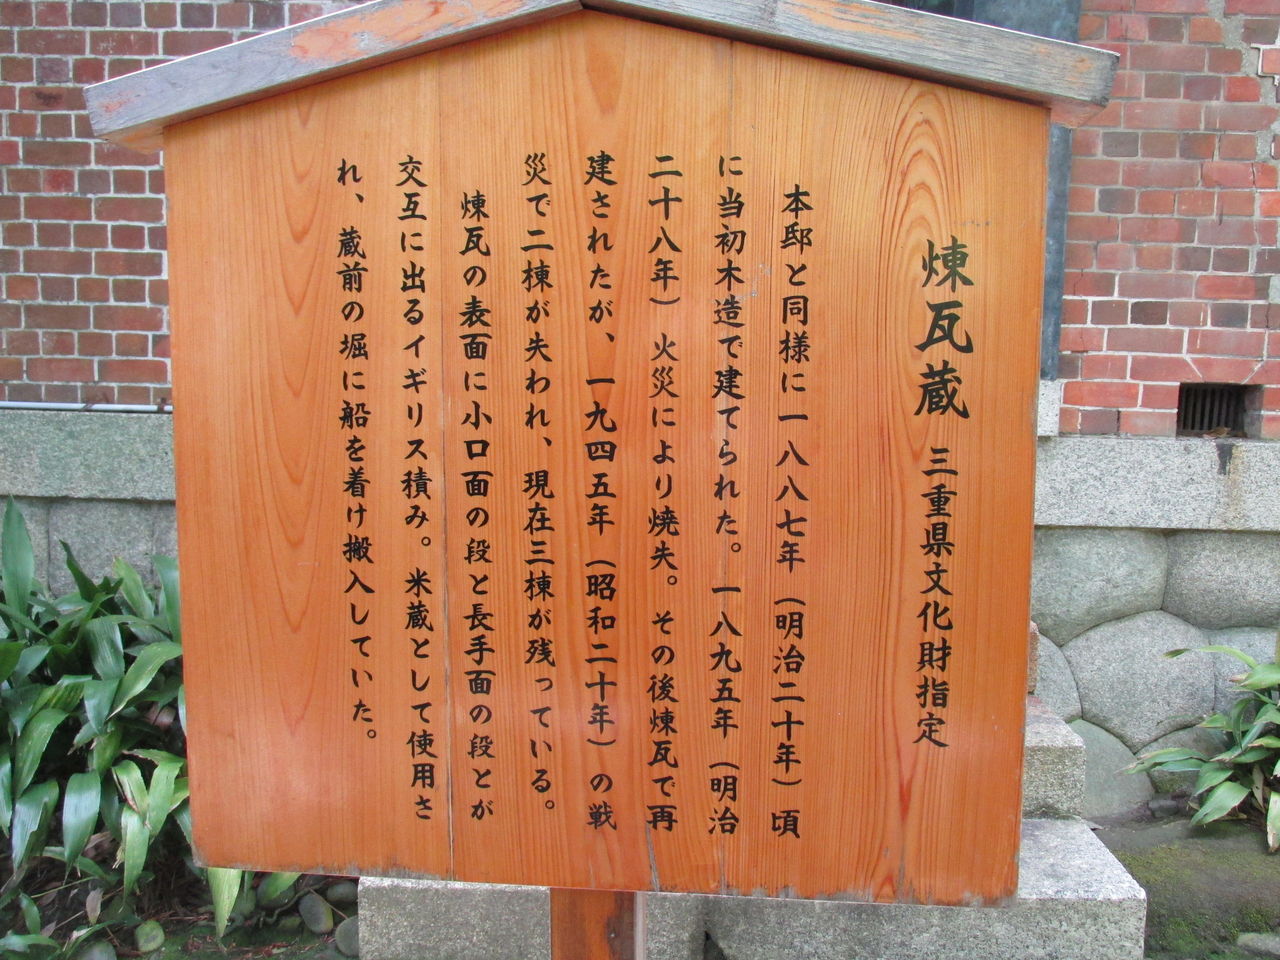 煉瓦蔵 三重県文化財指定
本邸と同様に一八八七年（明治二十年）頃
に当初木造で建てられた。一八九五年（明治
二十八年）火災により焼失。その後煉瓦で再
建されたが、一九四五年（昭和二十年）の戦
災で二棟が失われ、現在三棟が残っている。
煉瓦の表面に小口面の段と長手面の段とが
交互に出るイギリス積み。米蔵として使用さ
れ、蔵前の堀に船を着け搬入していた。